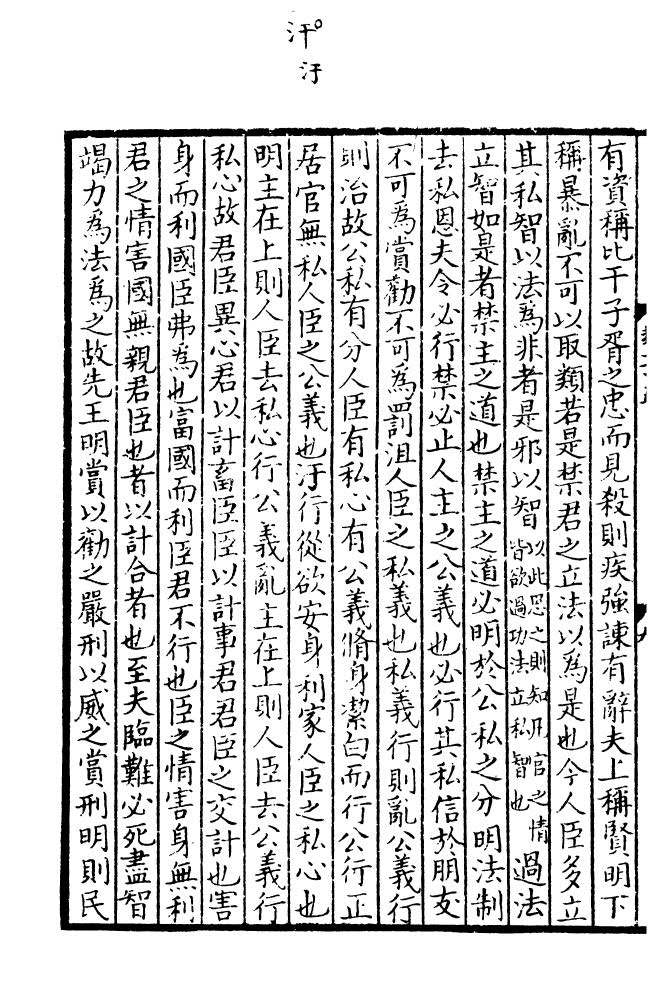 汗
汙
有資稱比干子胥之忠而見殺則疾強諫有辭夫上稱賢明下
稱暴亂不可以取類若是禁君之立法以為是也今人臣多立
其私智以法為非者是邪以智以此思之則知凡官之情皆欲過功法立私智也過法
立智如是者禁主之道也禁主之道必明於公私之分明法制
去私恩夫令必行禁必止人主之公義也必行其私信於朋友
不可為賞勸不可為罰沮人臣之私義也私義行則亂公義行
則治故公私有分人臣有私心有公義脩身潔白而行公行正
居官無私人臣之公義也汙行從欲安身利家人臣之私心也
明主在上則人臣去私心行公義亂主在上則人臣去公義行
私心故君臣異心君以計畜臣臣以計事君君臣之交計也害
身而利國臣弗為也富國而利臣君不行也臣之情害身無利
君之情害國無親君臣也者以計合者也至夫臨難必死盡智
竭力為法為之故先王明賞以勸之嚴刑以威之賞刑明則民